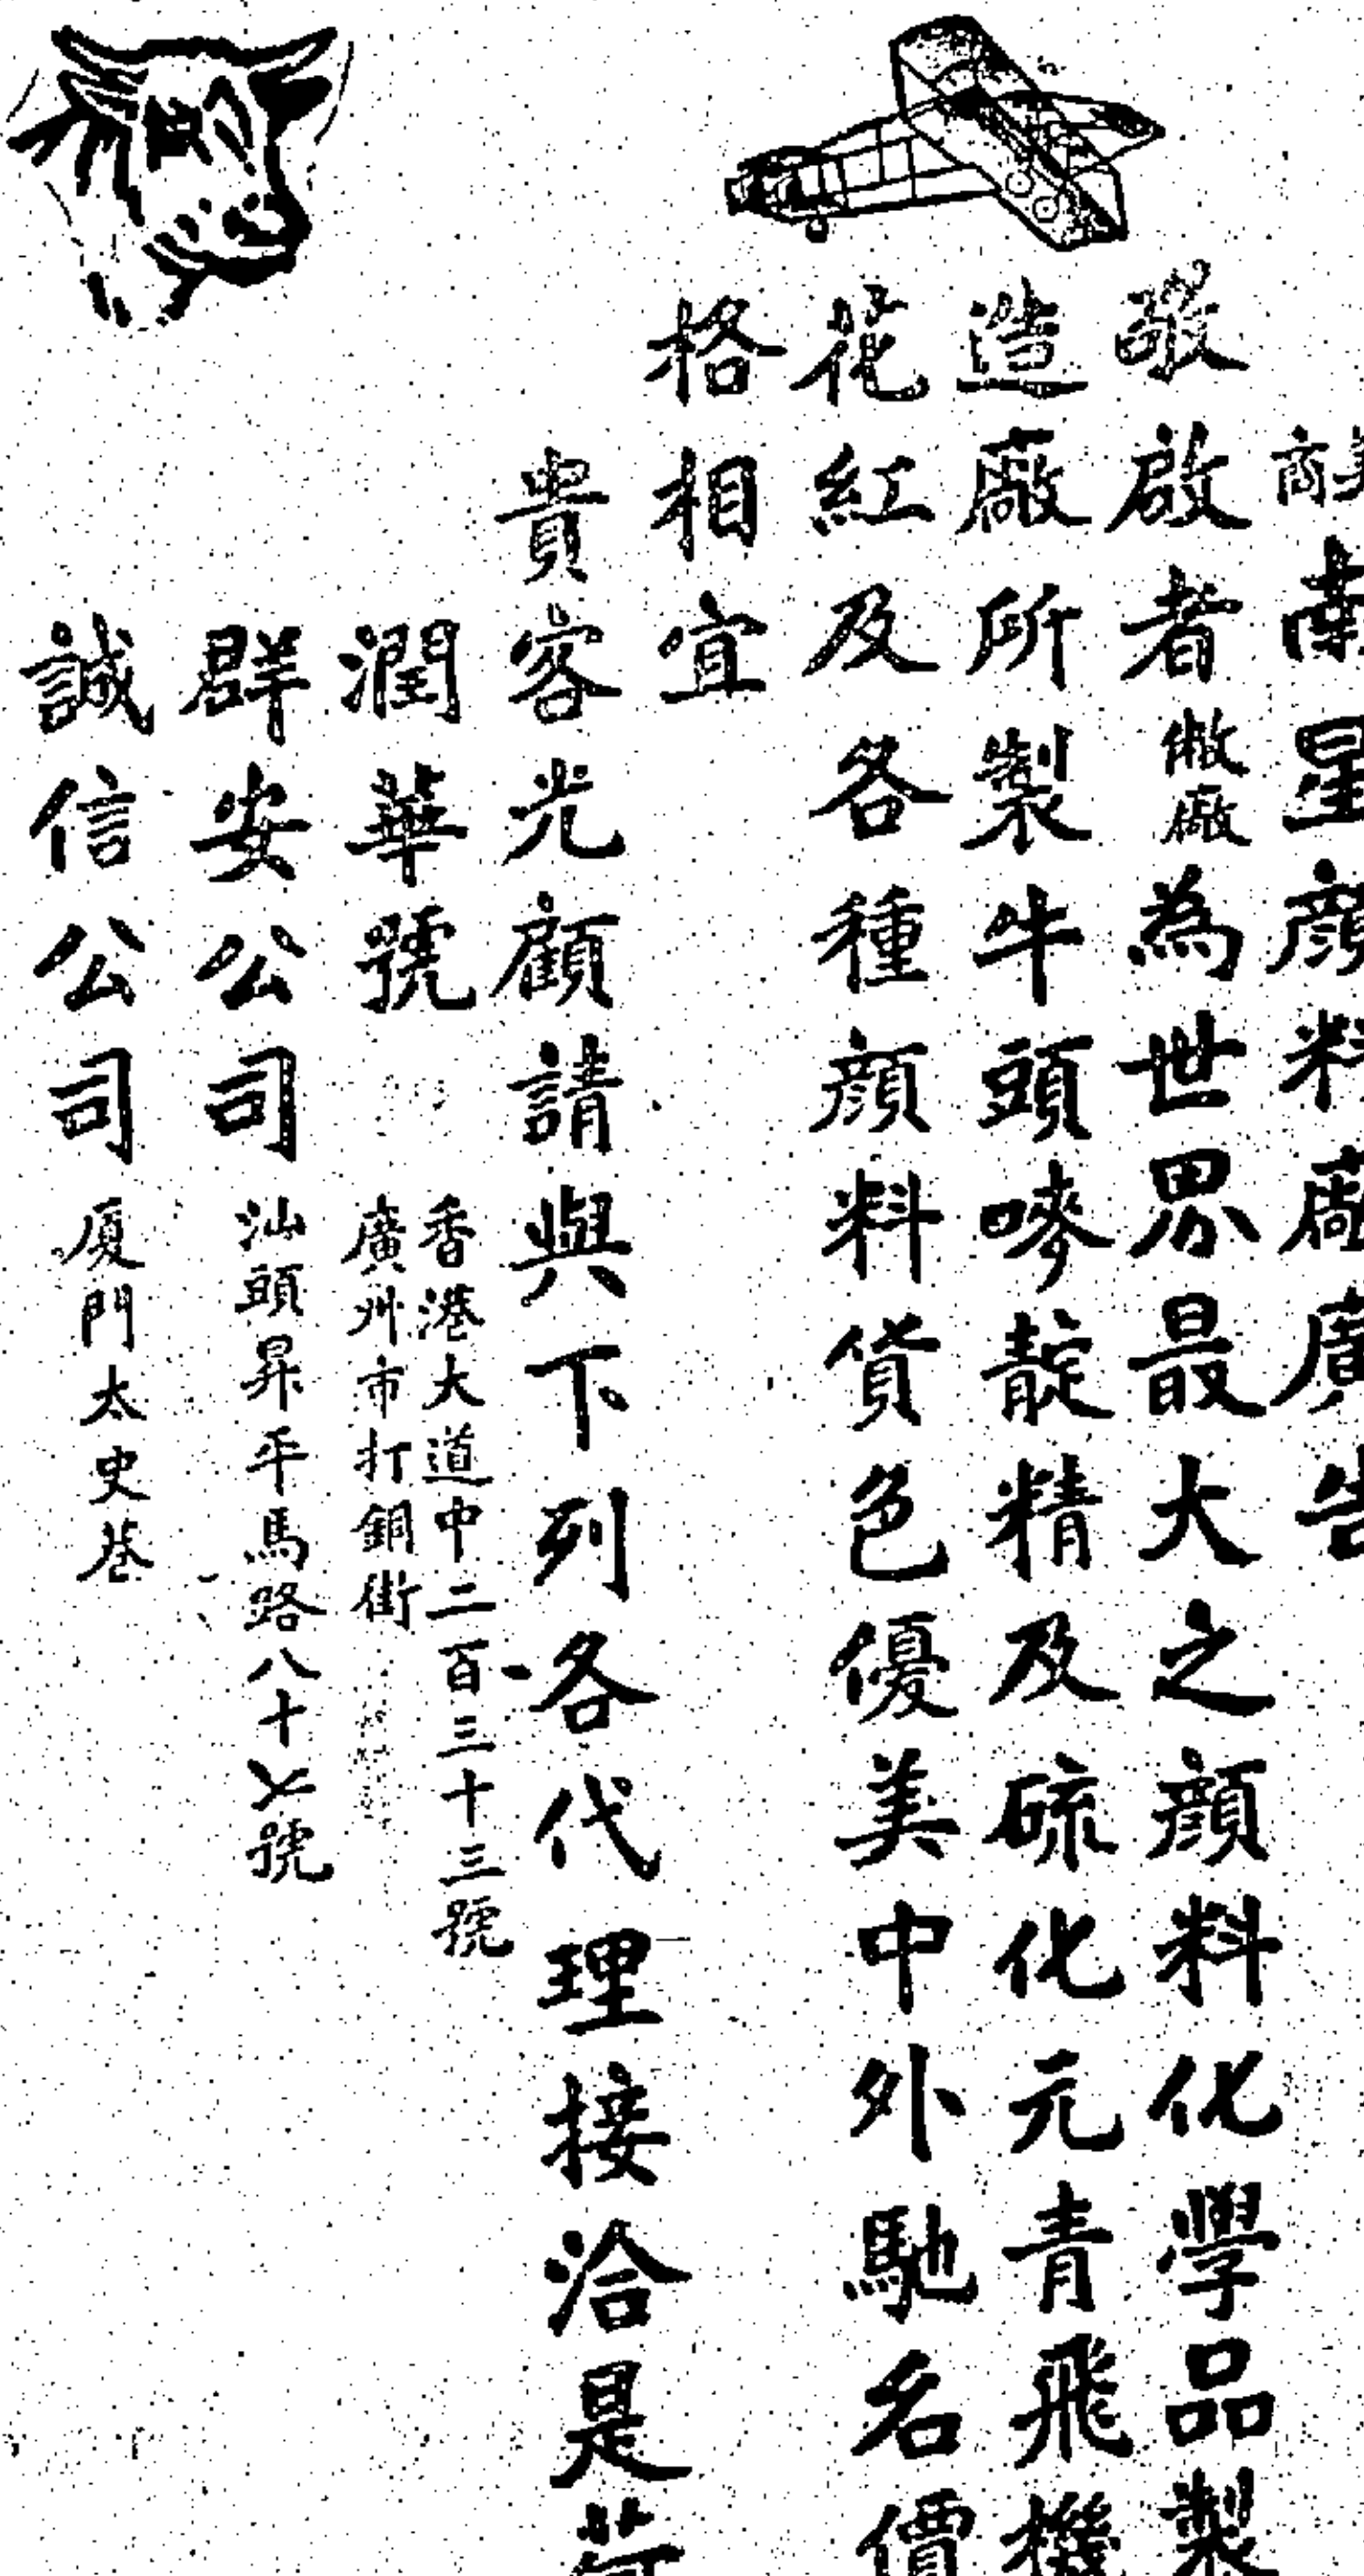 美商南星顔料廠廣告
敬啟者敝廠為世界最大之顔料化學品製
造廠所製牛頭嘜靛精及硫化元青飛機
花紅及各種顔料貨色優美中外馳名價
格相宜
貴客光顧請與下列各代理接洽是荷
潤華號
香港大道中二百三十三號
廣州市打銅街
群安公司 汕頭昇平馬路八十七號
誠信公司 厦門太史巷